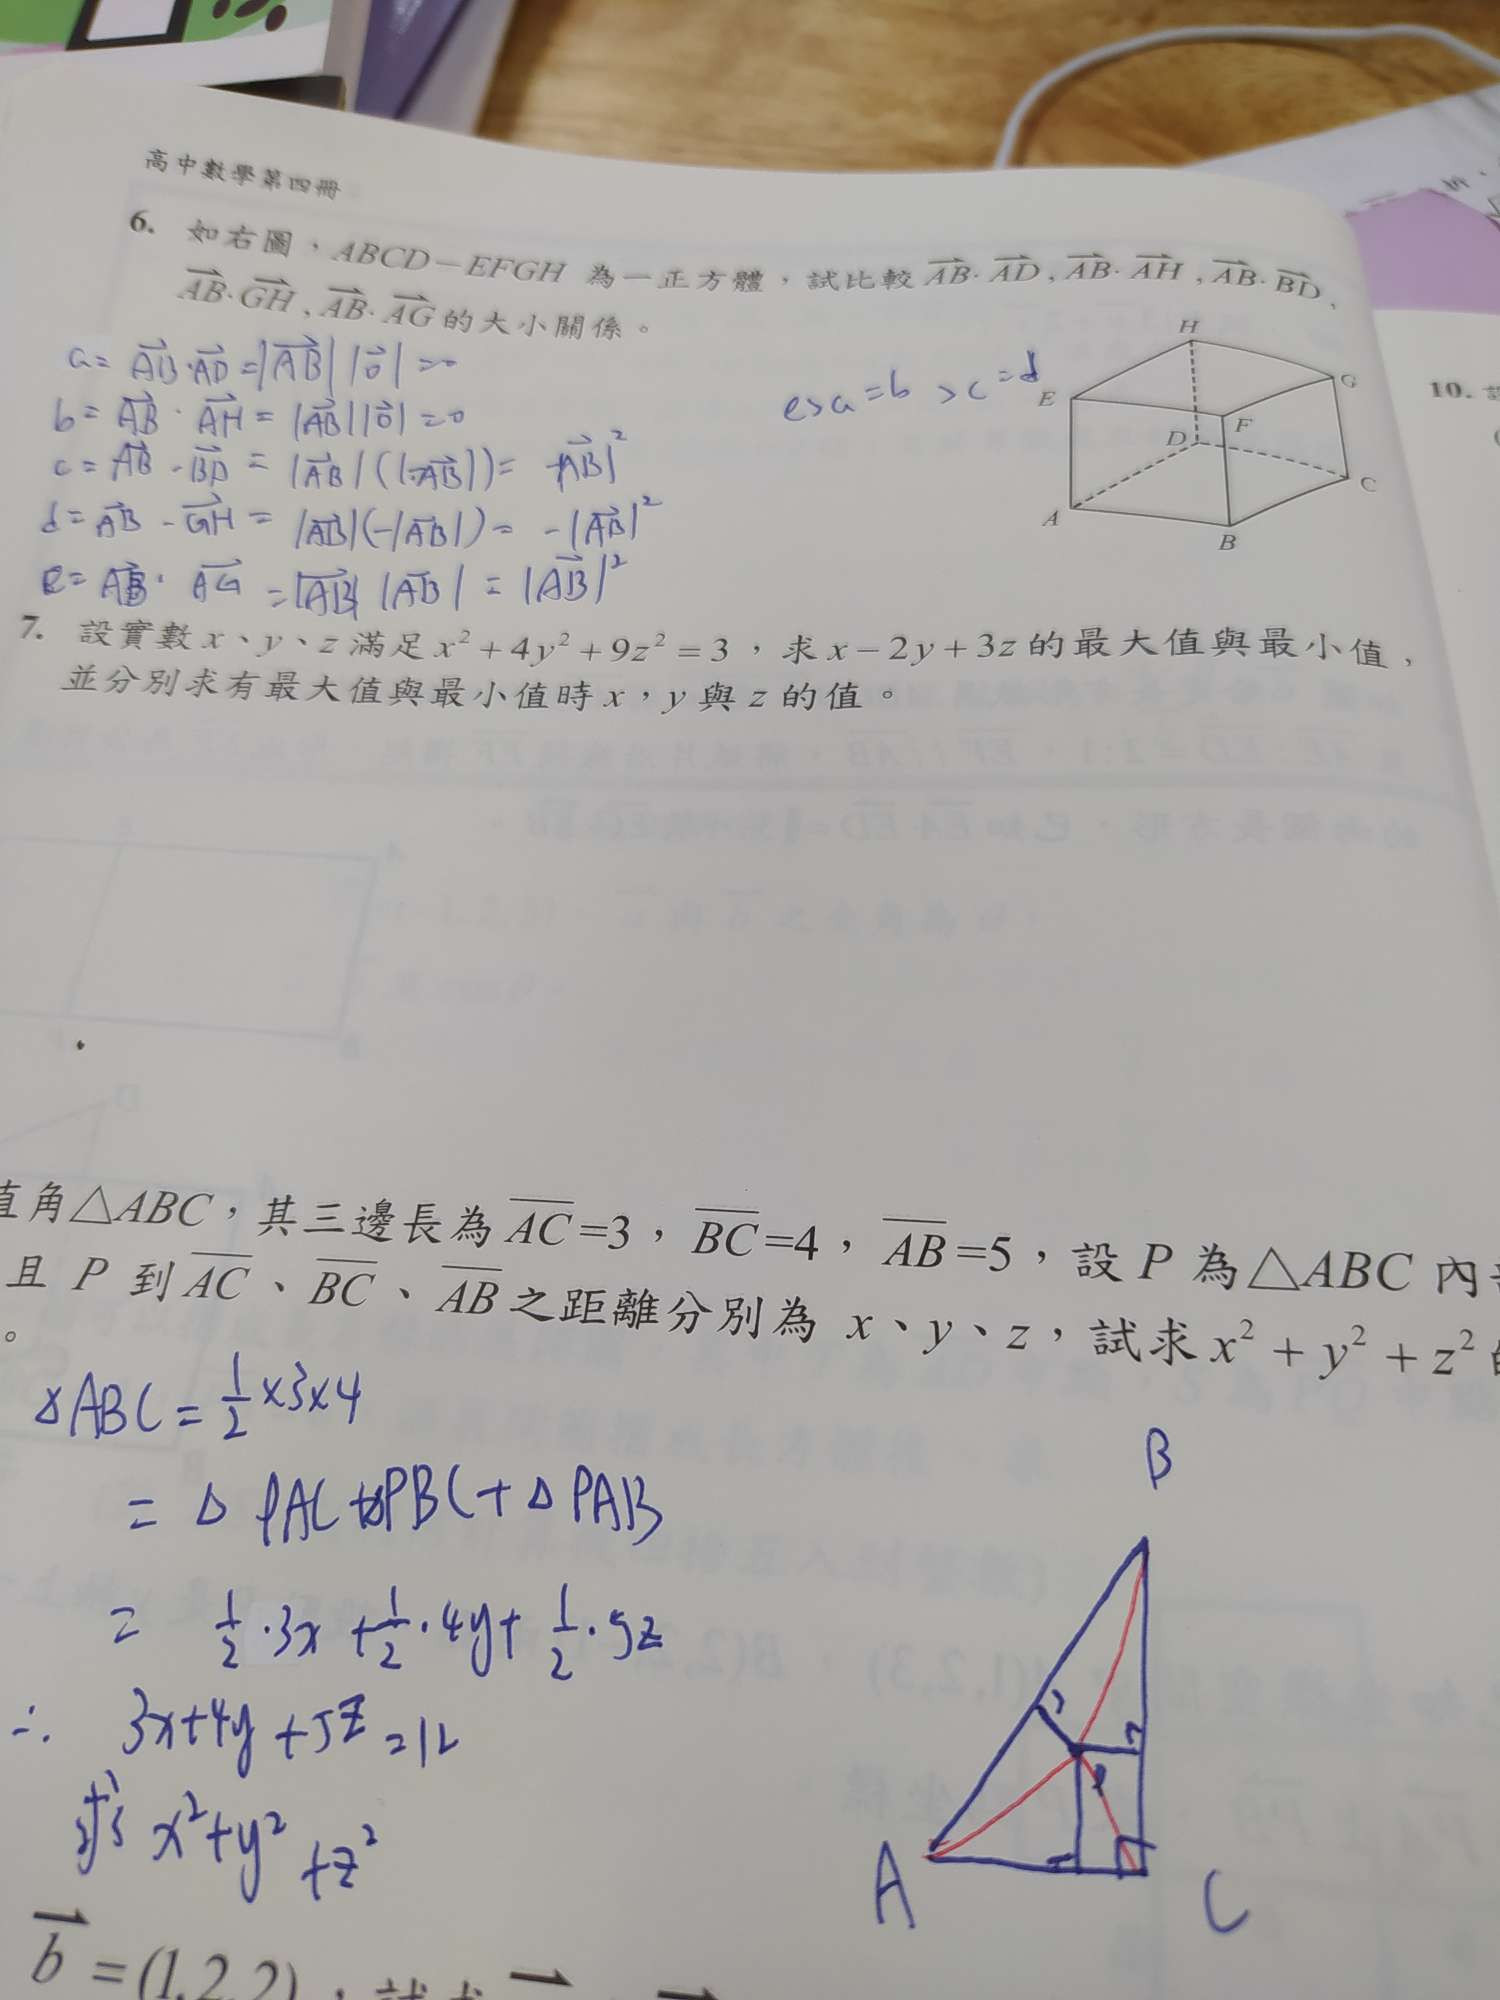 高中數學第四冊
6. 如右圖，ABCD－EFGH 為一正方體，試比較 $\overrightarrow{AB}\cdot\overrightarrow{AD}$，$\overrightarrow{AB}\cdot\overrightarrow{AH}$，$\overrightarrow{AB}\cdot\overrightarrow{BD}$，
$\overrightarrow{AB}\cdot\overrightarrow{GH}$，$\overrightarrow{AB}\cdot\overrightarrow{AG}$ 的大小關係。
a= $\overrightarrow{AB}\cdot\overrightarrow{AD}$ =|$\overrightarrow{AB}$| |$\vec{0}$| =0
b= $\overrightarrow{AB}\cdot\overrightarrow{AH}$ = |$\overrightarrow{AB}$||$\vec{0}$| =0
c= $\overrightarrow{AB}\cdot\overrightarrow{BD}$ = |$\overrightarrow{AB}$|(|-$\overrightarrow{AB}$|)= -|$\overrightarrow{AB}$|²
d= $\overrightarrow{AB}\cdot\overrightarrow{GH}$ = |$\overrightarrow{AB}$|(-|$\overrightarrow{AB}$|)= -|$\overrightarrow{AB}$|²
e= $\overrightarrow{AB}\cdot\overrightarrow{AG}$ =|$\overrightarrow{AB}$| |$\overrightarrow{AB}$| = |$\overrightarrow{AB}$|²
e>a=b>c=d
H
G
E
F
D
C
A
B
10.
7. 設實數 x、y、z 滿足 x²+4y²+9z²=3，求 x−2y+3z 的最大值與最小值，
並分別求有最大值與最小值時 x，y 與 z 的值。
直角△ABC，其三邊長為 $\overline{AC}$=3，$\overline{BC}$=4，$\overline{AB}$=5，設 P 為△ABC 內
且 P 到 $\overline{AC}$、$\overline{BC}$、$\overline{AB}$ 之距離分別為 x、y、z，試求 x²+y²+z²
。
△ABC = ½×3×4
= △PAC+△PBC+△PAB
= ½·3x+½·4y+½·5z
∴ 3x+4y+5z=12
求 x²+y²+z²
B
P
A
C
$\vec{b}$=(1,2,2)，試求